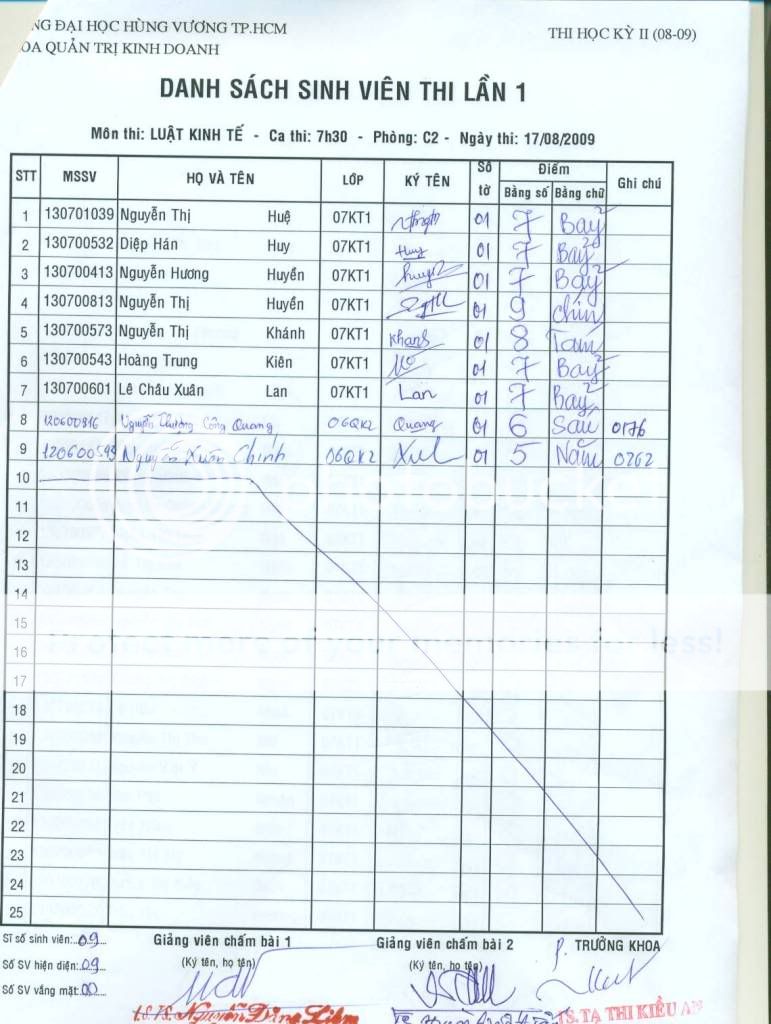 NG ĐẠI HỌC HÙNG VƯƠNG TP.HCM
THI HỌC KỲ II (08-09)
OA QUẢN TRỊ KINH DOANH
DANH SÁCH SINH VIÊN THI LẦN 1
Môn thi: LUẬT KINH TẾ - Ca thi: 7h30 - Phòng: C2 - Ngày thi: 17/08/2009
STT MSSV HỌ VÀ TÊN LỚP KÝ TÊN Số tờ Điểm Ghi chú
Bằng số Bằng chữ
1 130701039 Nguyễn Thị Huệ 07KT1 01 7 Bảy
2 130700532 Diệp Hán Huy 07KT1 Huy 01 7 Bảy
3 130700413 Nguyễn Hương Huyền 07KT1 01 7 Bảy
4 130700813 Nguyễn Thị Huyền 07KT1 01 9 Chín
5 130700573 Nguyễn Thị Khánh 07KT1 Khanh 01 8 Tám
6 130700543 Hoàng Trung Kiên 07KT1 01 7 Bảy
7 130700601 Lê Châu Xuân Lan 07KT1 Lan 01 7 Bảy
8 120600816 Nguyễn Công Quang 06QK2 Quang 01 6 Sáu 0176
9 120600593 Nguyễn Xuân Chinh 06QK2 01 5 Năm 0262
10
11
12
13
14
15
16
17
18
19
20
21
22
23
24
25
Sĩ số sinh viên: 09
Số SV hiện diện: 09
Số SV vắng mặt: 00
Giảng viên chấm bài 1
(Ký tên, họ tên)
Giảng viên chấm bài 2
(Ký tên, họ tên)
P. TRƯỞNG KHOA
TS. TẠ THỊ KIỀU AN
photobucket
of your memories for less!